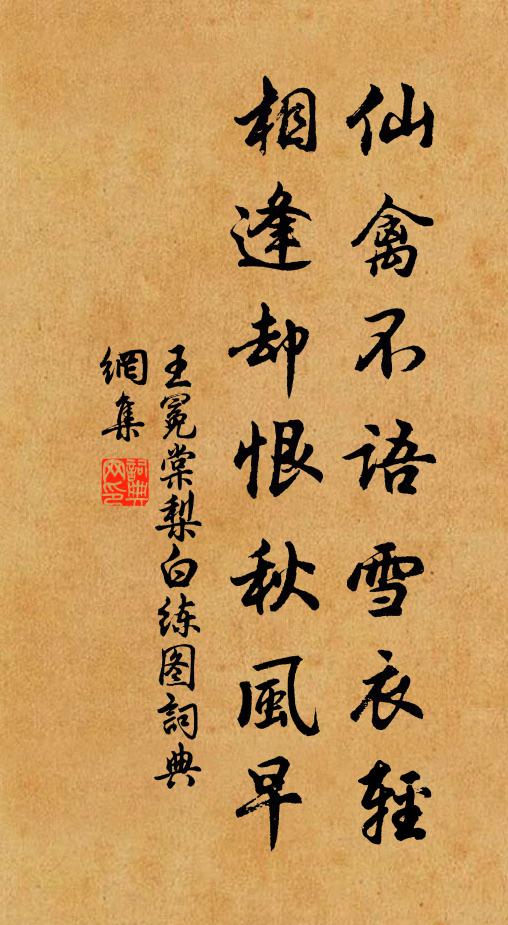 仙禽不語雪衣輕
相逢却恨秋風早
王冕棠梨白练图詞典
網集
詞典
网印